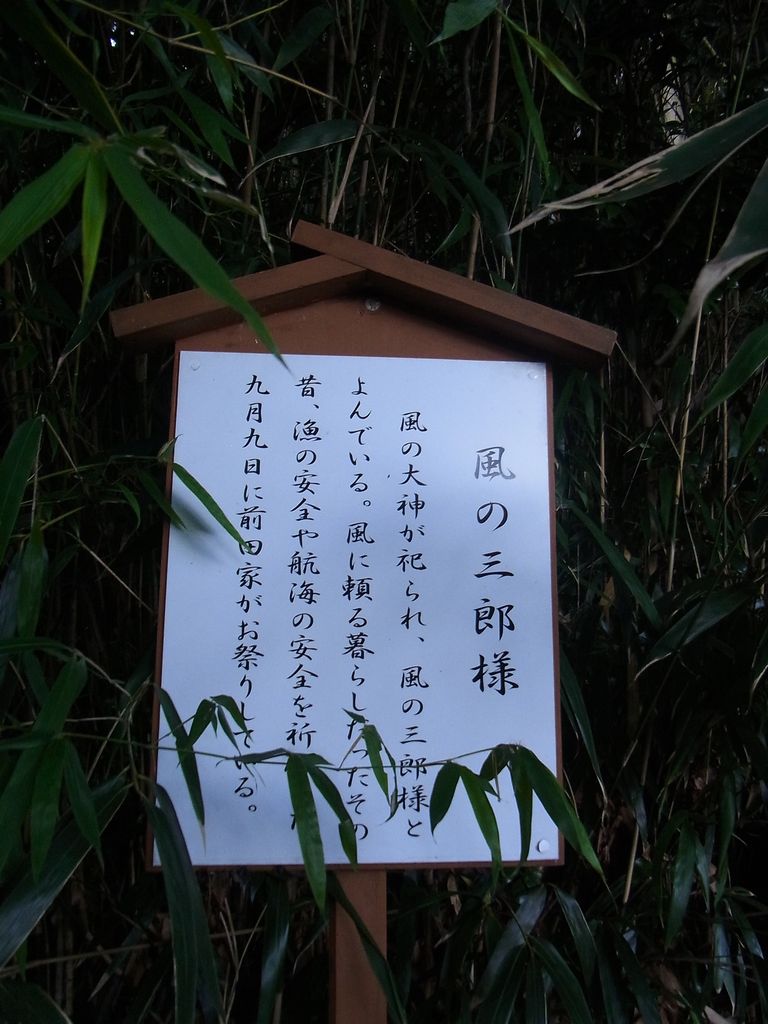 風の三郎様
風の大神が祀られ、風の三郎様と
よんでいる。風に頼る暮らしだったその
昔、漁の安全や航海の安全を祈
九月九日に前田家がお祭りしている。